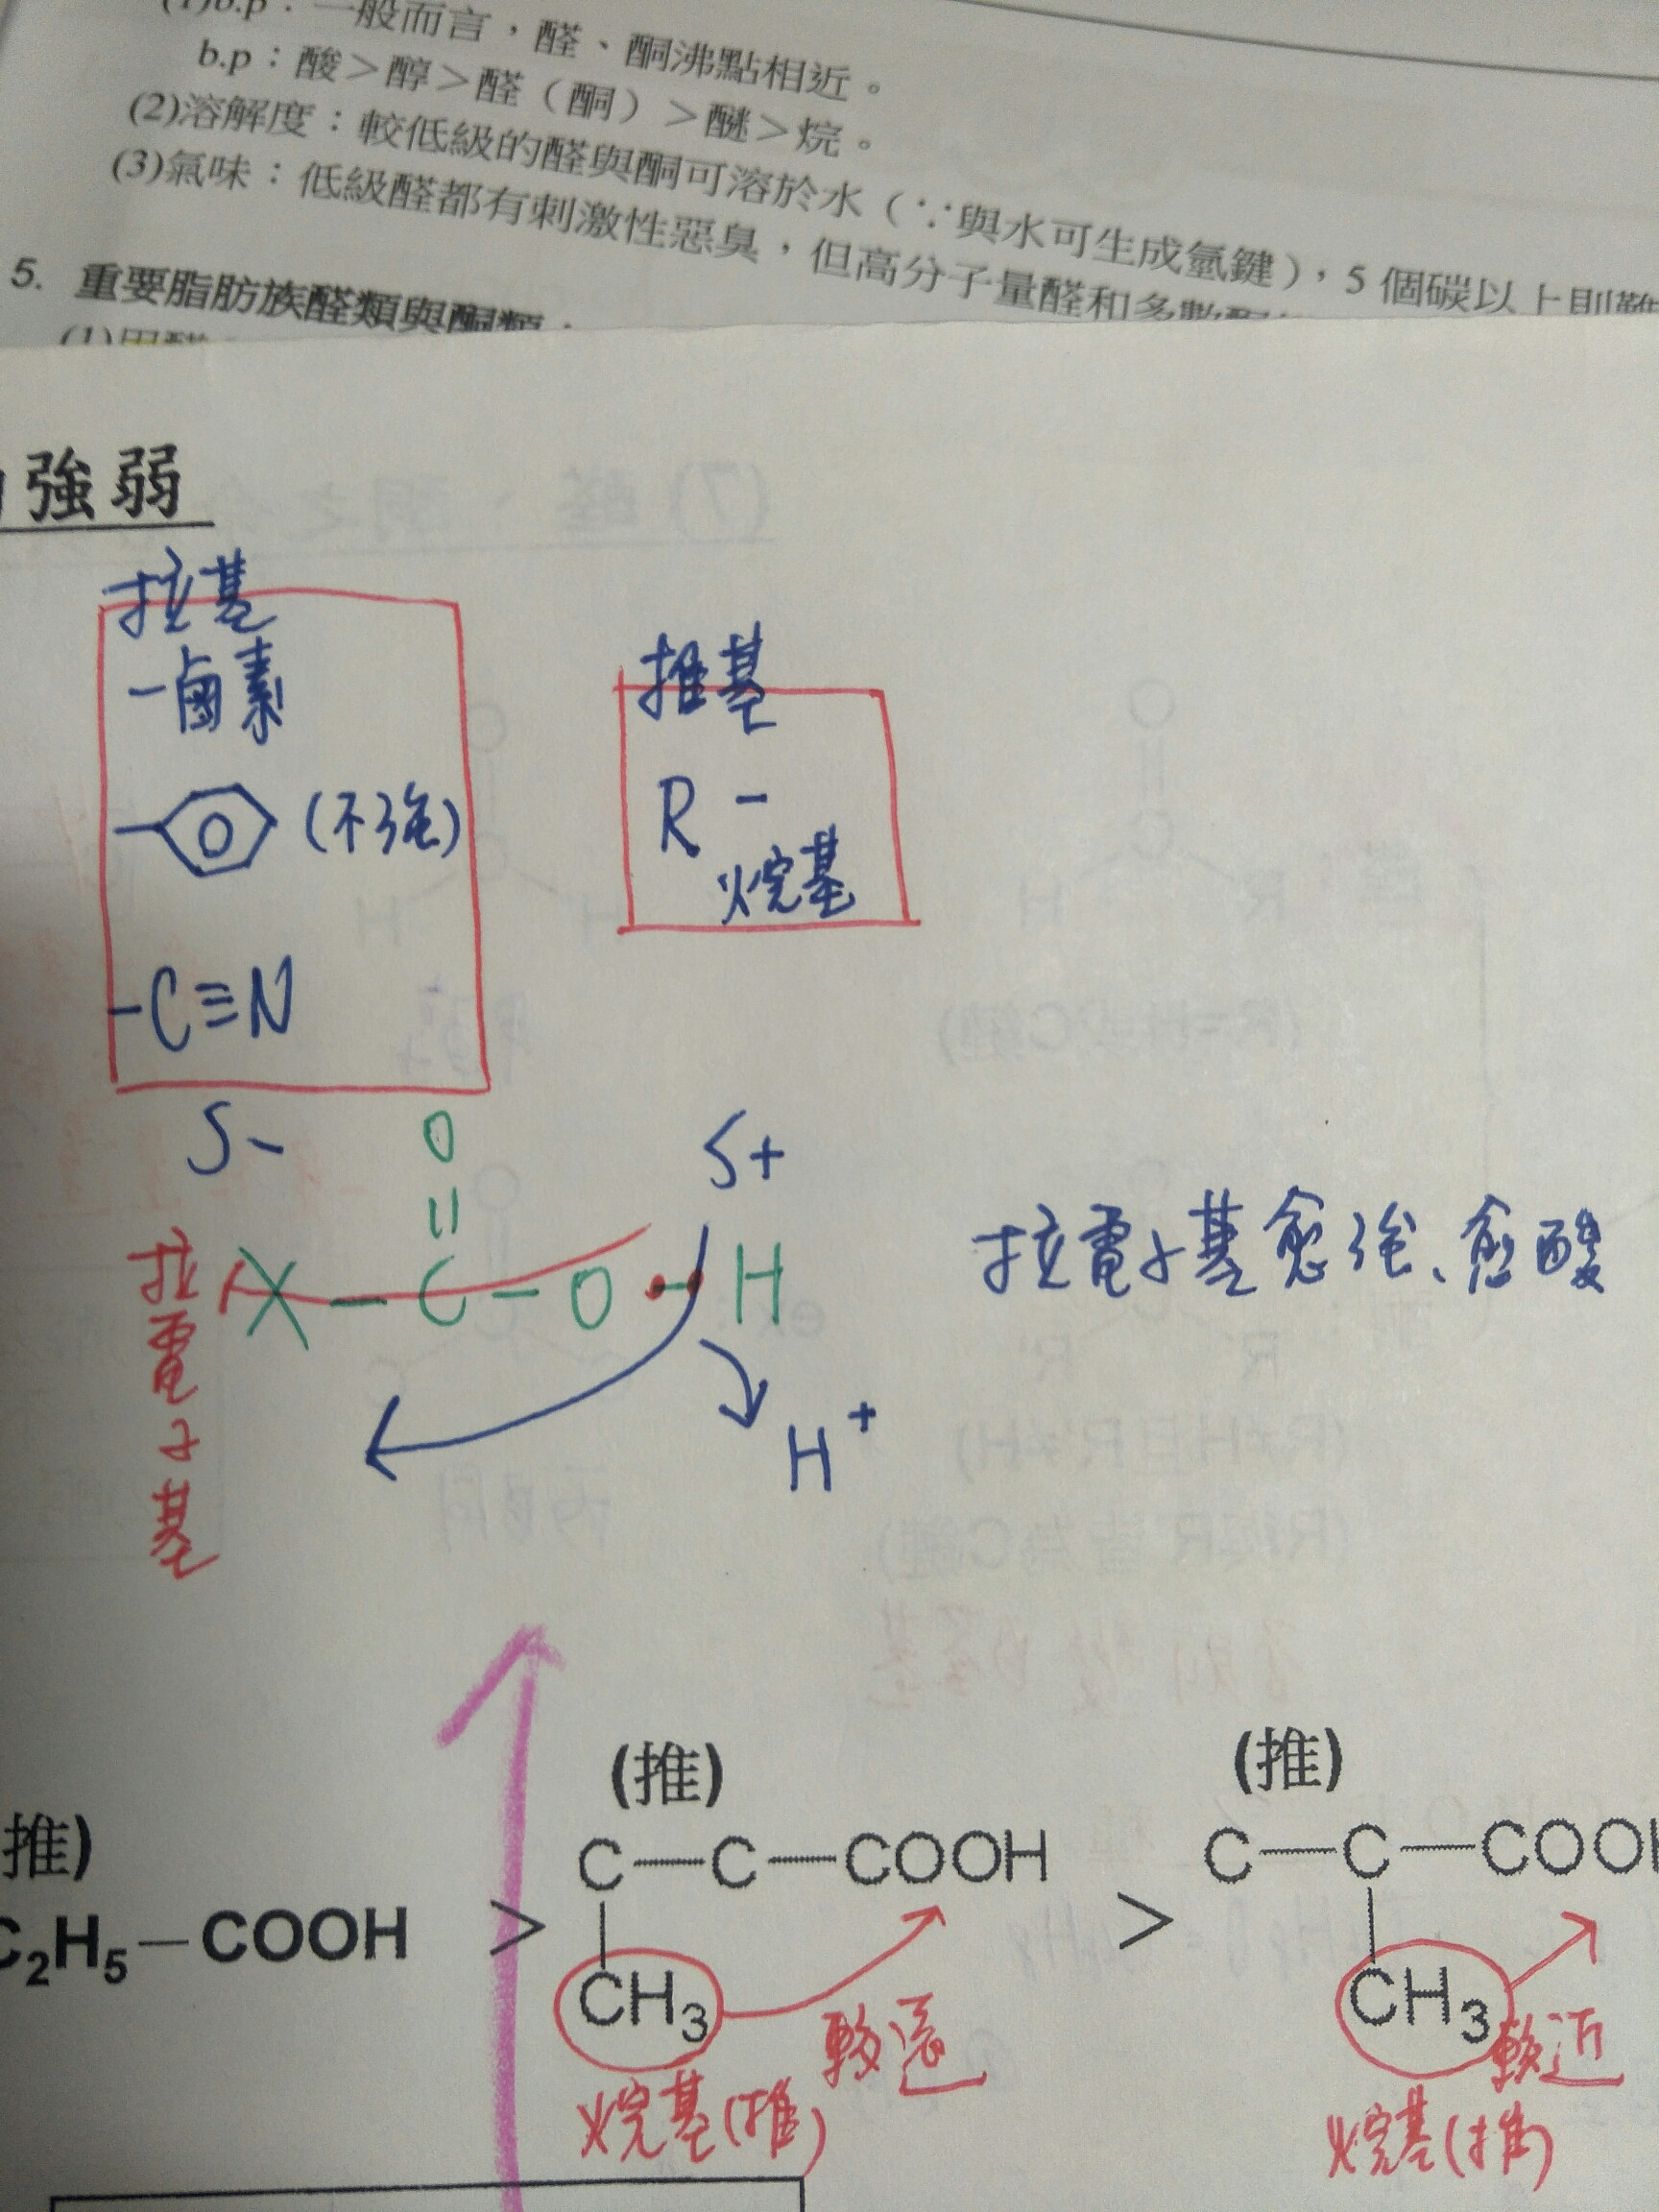 (1)b.p：一般而言，醛、酮沸點相近。
b.p：酸＞醇＞醛（酮）＞醚＞烷。
(2)溶解度：較低級的醛與酮可溶於水（∵與水可生成氫鍵），5 個碳以上則難
(3)氣味：低級醛都有刺激性惡臭，但高分子量醛和多數酮
5. 重要脂肪族醛類與酮類：
(1)甲醛
強弱
拉基
－鹵素
(不強)
－C≡N
推基
R－
烷基
δ－
O
δ+
X－C－O－H
H⁺
拉電子基
拉電子基愈強、愈酸
推)
C₂H₅－COOH
>
(推)
C－C－COOH
CH₃
較遠
烷基(推)
>
(推)
C－C－COOH
CH₃
較近
烷基(推)